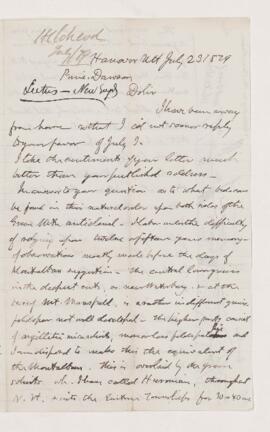 Hanover NH July 23 1879
Prin. Dawson
Dr Sir
I have been away
from home so that I could not sooner reply
to your favor of July 7.
I like the sentiments of your letter much
better than your published address—
In answer to your question as to what beds can
be found in this natural order upon both sides of the
Green Mtn anticlinal— I labor under the difficulty
of relying upon twelve or fifteen years memory
of observations mostly made before the days of
Montalban suggestion— the central lowest gneiss
in the deepest cuts, as near Waterbury, & at the
Mt Mansfield, is another indifferent gneiss
feldspar not well developed— the higher parts consist
of argillitic mica schists, more or less feldspathic
and I am disposed to make this the equivalent of
the Montalban. This is overlaid by the green
schists wh. I have called Huronian, throughout
N. H. & into the Eastern Townships for 30 or 40 m